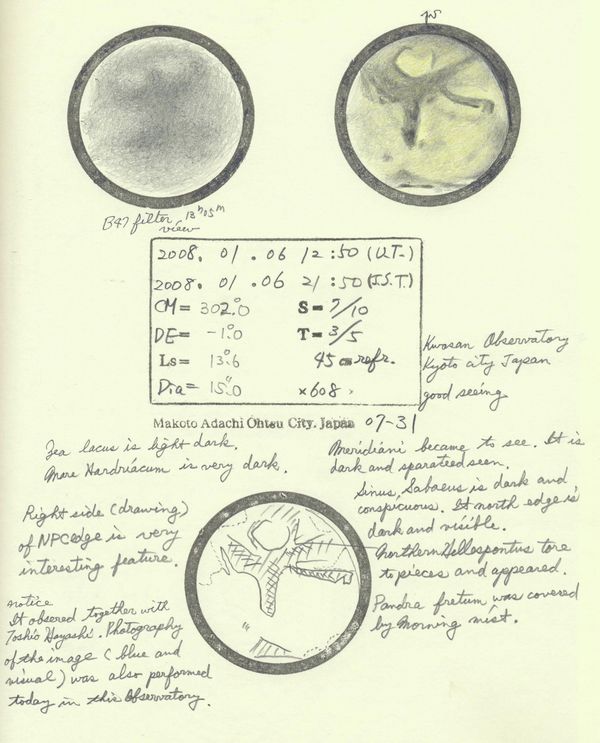 B47 filter 13h05m
view
2008. 01. 06 12:50 (U.T.)
2008. 01. 06 21:50 (J.S.T.)
CM= 302.°0 S= 7/10
DE= -1.°0 T= 3/5
Ls= 13.°6 45 cm refr.
Dia= 15."0 ×608.
Kwasan Observatory
Kyoto city Japan
good seeing
Makoto Adachi Ohtsu City. Japan 07-31
Zea lacus is light dark.
Mare Hardriacum is very dark.
Meridiani became to see. It is
dark and sparated seen.
Sinus Sabaeus is dark and
conspicuous. It north edge is
dark and visible.
Northern Hellespontus tore
to pieces and appeared.
Pandra fretum was covered
by Morning mist.
Right side (drawing)
of NPC edge is very
interesting feature.
notice
It obsered together with
Toshio Hayashi. Photography
of the image (blue and
visual) was also performed
today in this Observatory.